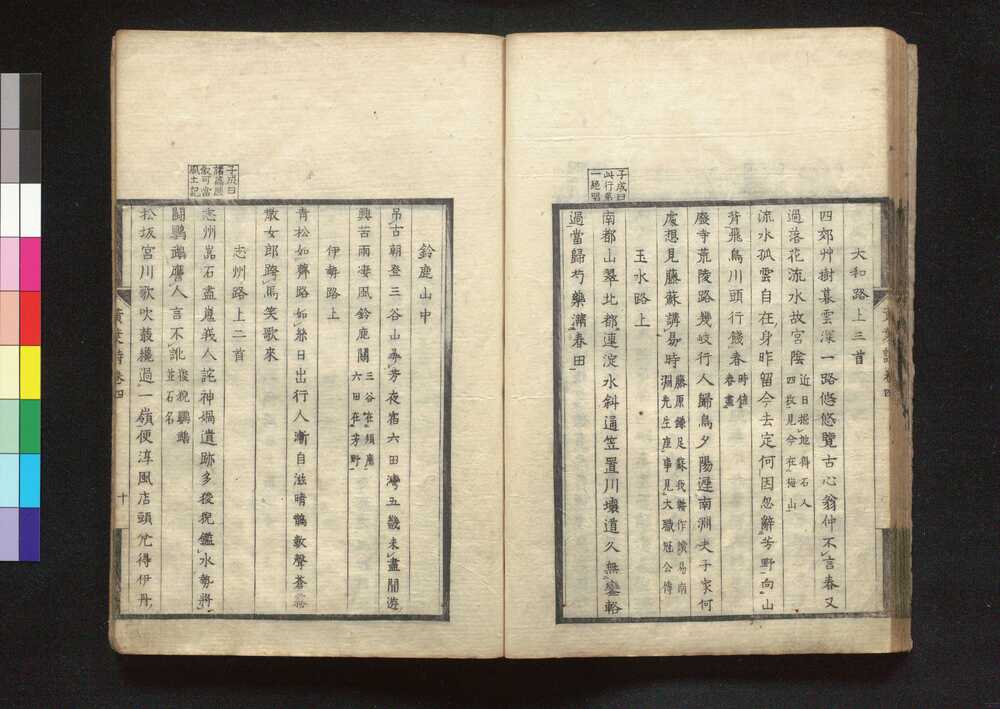 大和路上三首
四郊艸樹暮雲深一路悠悠覽古心翁仲不言春又
過落花流水故宮陰近日掘地得石人
四枚見今在梅山
流水孤雲自在身昨留今去定何因忽辭芳野向山
背飛鳥川頭行餞春時値
春盡
廢寺荒陵路幾岐行人歸鳥夕陽遲南淵夫子家何
處想見藤蘇講易時藤原鎌足蘇我
淵先生座事見大職冠公傳
玉水路上
南都山翠北都連淀水斜通笠置川壞道久無鑾輅
過當歸芍藥滿春田
子成曰
此行第
一絕唱
鈴鹿山中
吊古朝登三谷山尋芳夜宿六田灣五畿未盡閒遊
興苦雨凄風鈴鹿關三谷在
六田在芳野
伊勢路上
青松如薺路如絲日出行人漸自滋晴鵲數聲蒼靄
散女郎跨馬笑歌來
志州路上二首
志州嵬石盡嵬峩人詫神媧遺跡多狻猊鑑水勢將
鬪鸚鵡譍人言不訛狻猊鸚鵡
並石名
松坂宮川歌吹裁纔過一嶺便淳風店頭尤得伊丹
子成曰
諸篇
敍可當
風土記
黃葉詩卷四
十